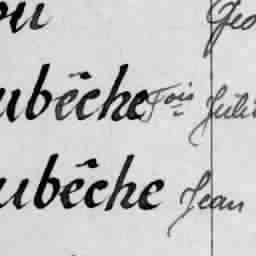 ou Geo
ubêche Fois Juli
ubêche Jean